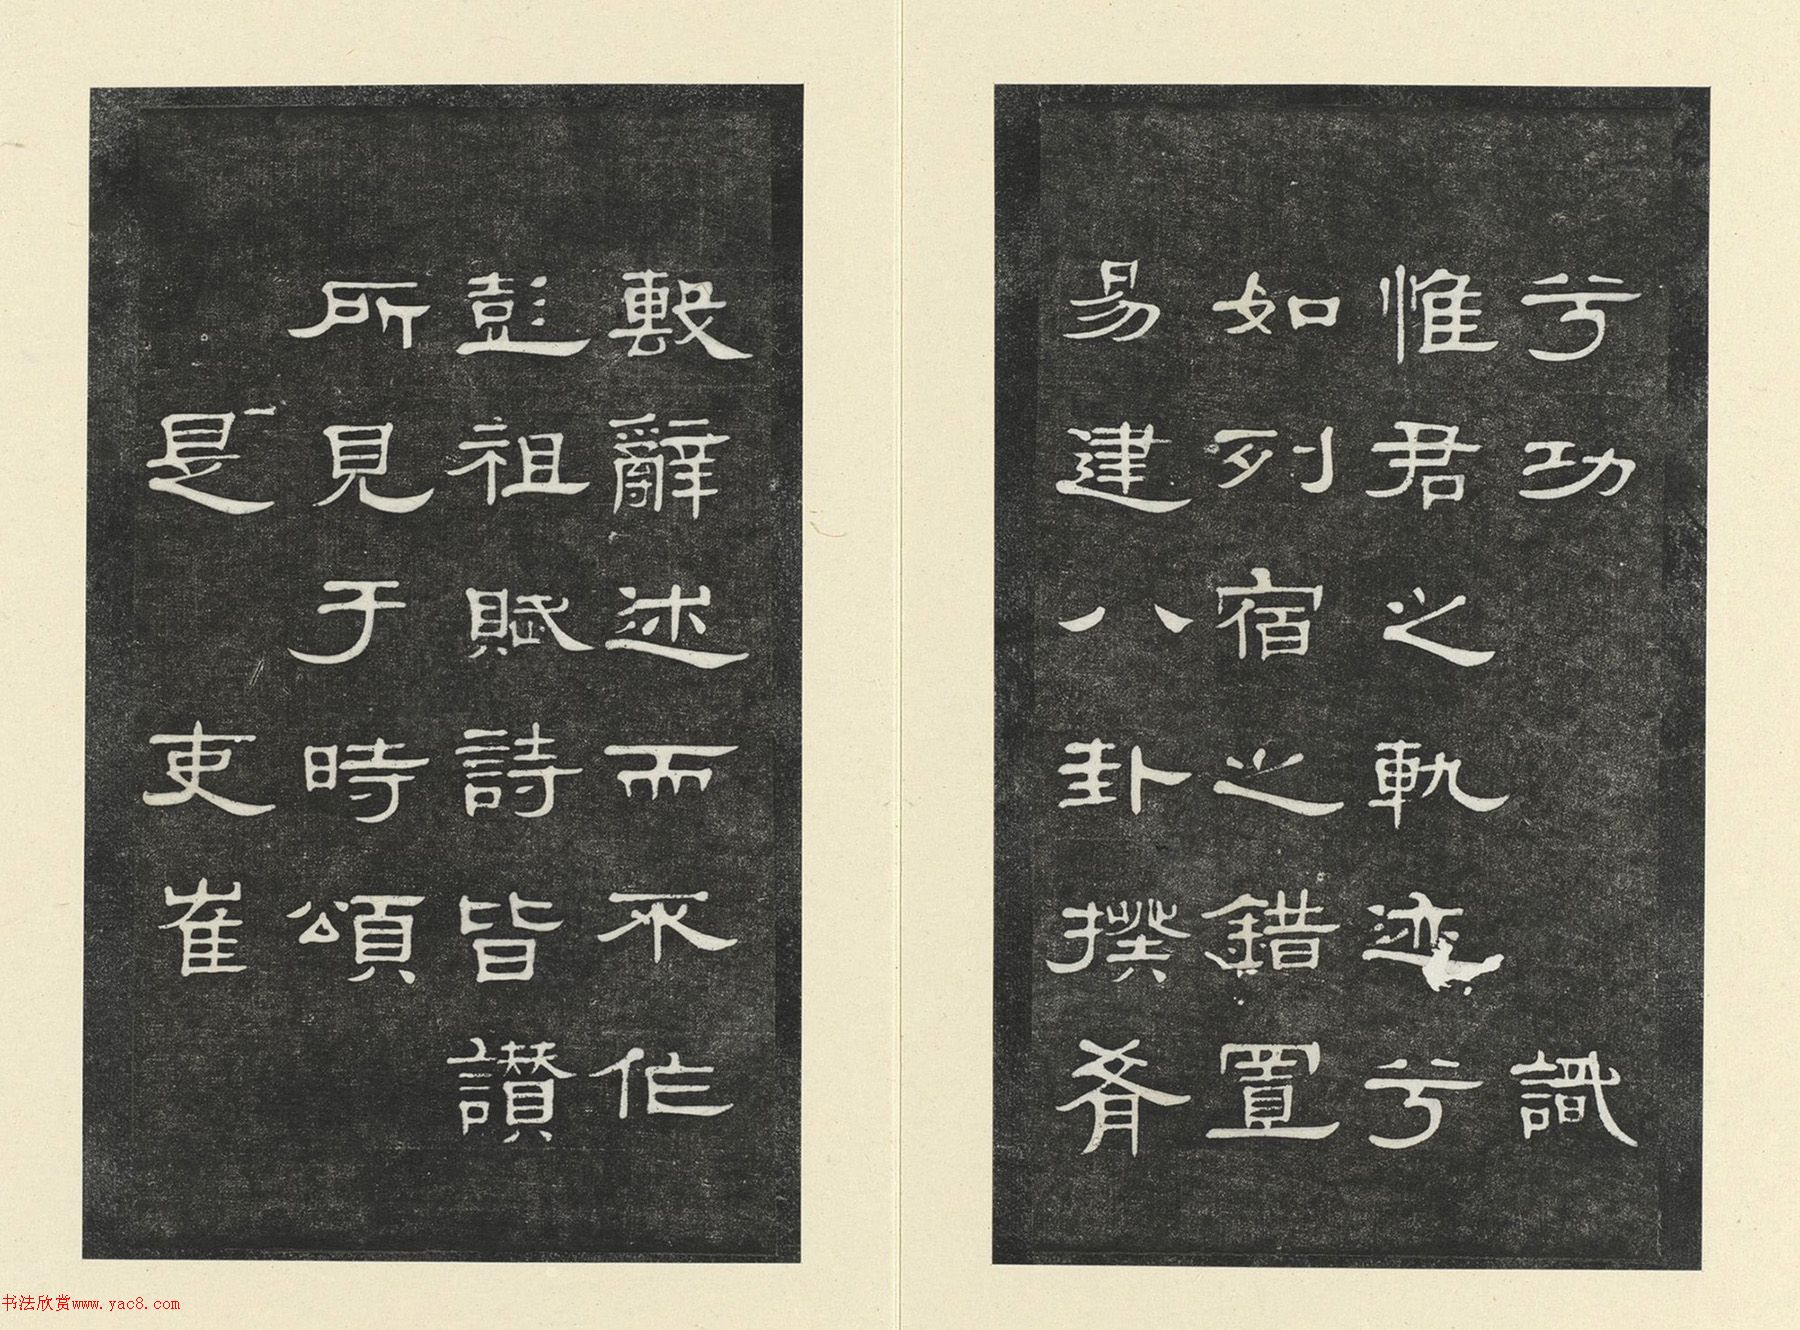 兮功識
惟君之軌迹兮
如列宿之錯置
易建八卦揆肴
毄辭述而不作
彭祖賦詩皆讚
所見于時頌
是吏崔
书法欣赏www.yac8.com